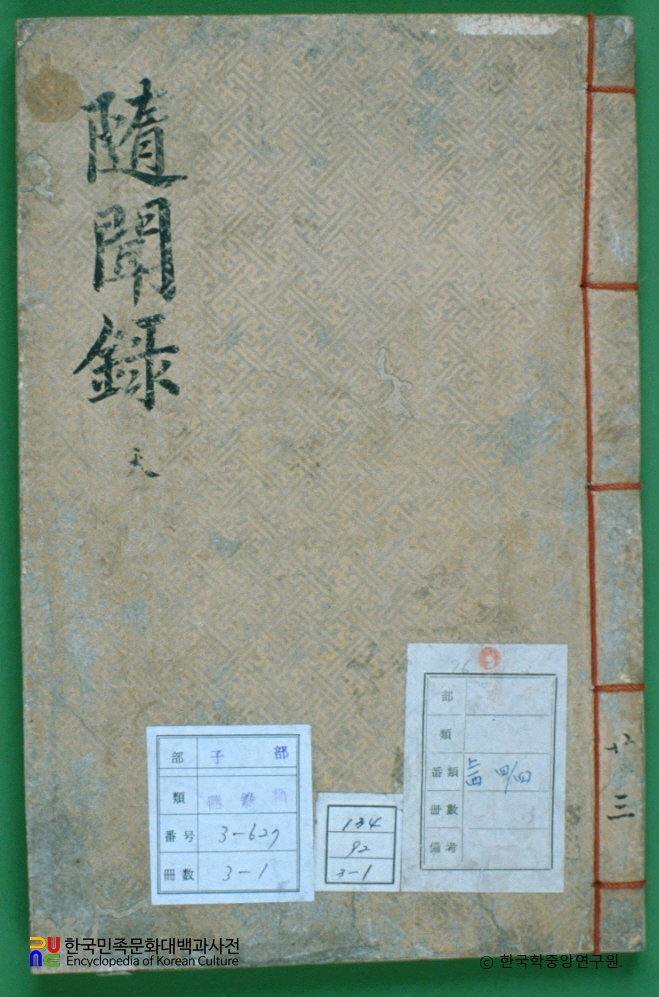 隨聞録
天
部 子 部
類
番号 3-627
冊数 3-1
134
92
3-1
部
類
番類
冊數
備考
三
한국민족문화대백과사전
Encyclopedia of Korean Culture
© 한국학중앙연구원.